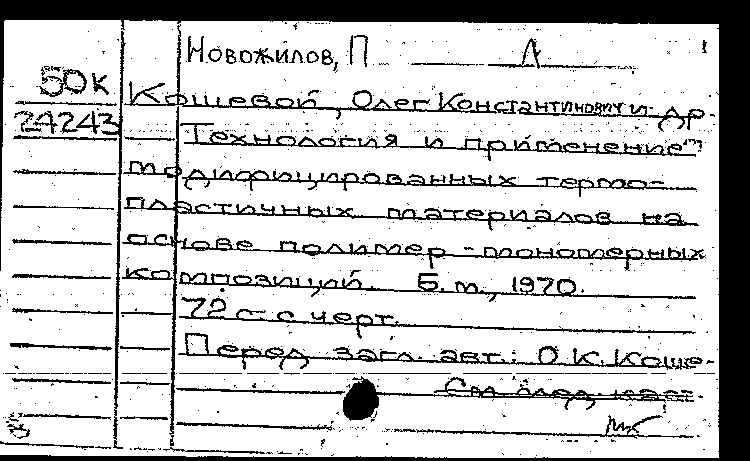 Новожилов, П Л
50К
Кошевой, Олег Константинович и др.
24243
Технология и применение
модифицированных термо-
пластичных материалов на
основе полимер-мономерных
композиций. Б.м., 1970.
72 с. с черт.
Перед загл. авт.: О.К. Коше-
См. след. карт.